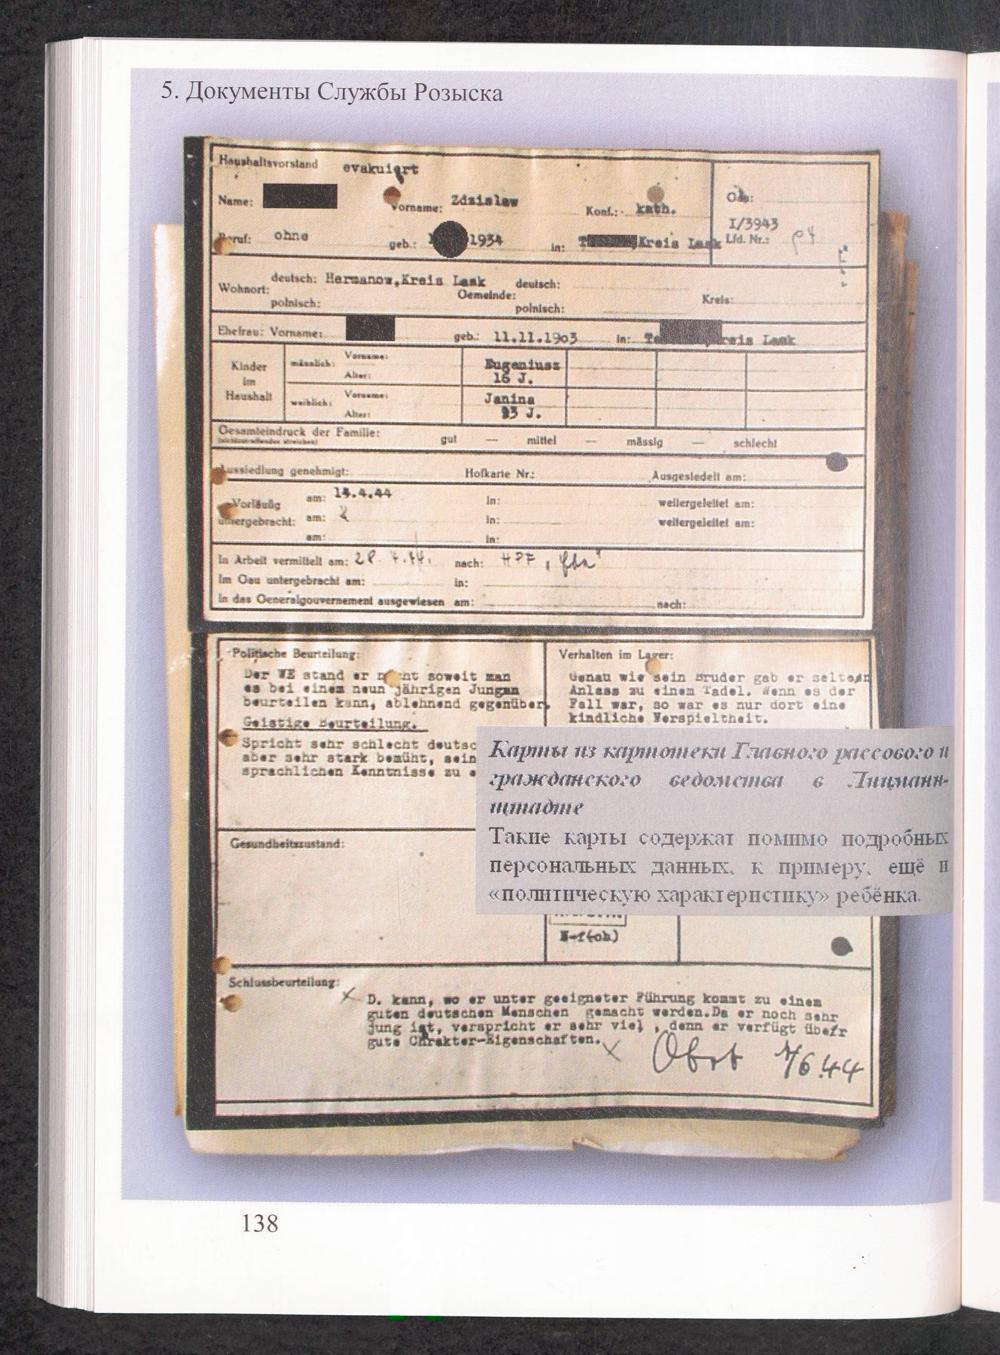 5. Документы Службы Розыска
Haushaltsvorstand evakuiert
Name: Vorname: Zdzislaw Konf.: kath. Gau:
I/3943
Beruf: ohne geb.: 1934 in: Kreis Lask Lfd. Nr.:
Wohnort: deutsch: Hermanow,Kreis Lask deutsch:
polnisch: Gemeinde: polnisch: Kreis:
Ehefrau: Vorname: geb.: 11.11.1903 in: Kreis Lask
Kinder im Haushalt
männlich: Vorname: Eugeniusz
Alter: 16 J.
weiblich: Vorname: Janina
Alter: 13 J.
Gesamteindruck der Familie: gut — mittel — mässig — schlecht
(nichtzutreffendes streichen)
Aussiedlung genehmigt: Hofkarte Nr.: Ausgesiedelt am:
Vorläufig untergebracht:
am: 14.4.44 in: weitergeleitet am:
am: in: weitergeleitet am:
am: in:
In Arbeit vermittelt am: nach:
Im Gau untergebracht am: in:
In das Generalgouvernement ausgewiesen am: nach:
Politische Beurteilung:
Der WE stand er nicht soweit man
es bei einem neun jährigen Jungen
beurteilen kann, ablehnend gegenüber.
Geistige Beurteilung.
Spricht sehr schlecht deutsc
aber sehr stark bemüht, sein
sprachlichen Kenntnisse zu e
Verhalten im Lager:
Genau wie sein Bruder gab er selten
Anlass zu einem Tadel. Wenn es der
Fall war, so war es nur dort eine
kindliche Verspieltheit.
Карты из картотеки Главного рассового и
гражданского ведомства в Лицманн-
штадте
Такие карты содержат помимо подробных
персональных данных, к примеру, ещё и
«политическую характеристику» ребёнка.
Gesundheitszustand:
Schlussbeurteilung:
D. kann, wo er unter geeigneter Führung kommt zu einem
guten deutschen Menschen gemacht werden.Da er noch sehr
jung ist, verspricht er sehr viel , denn er verfügt über
gute Charakter-Eigenschaften.
138